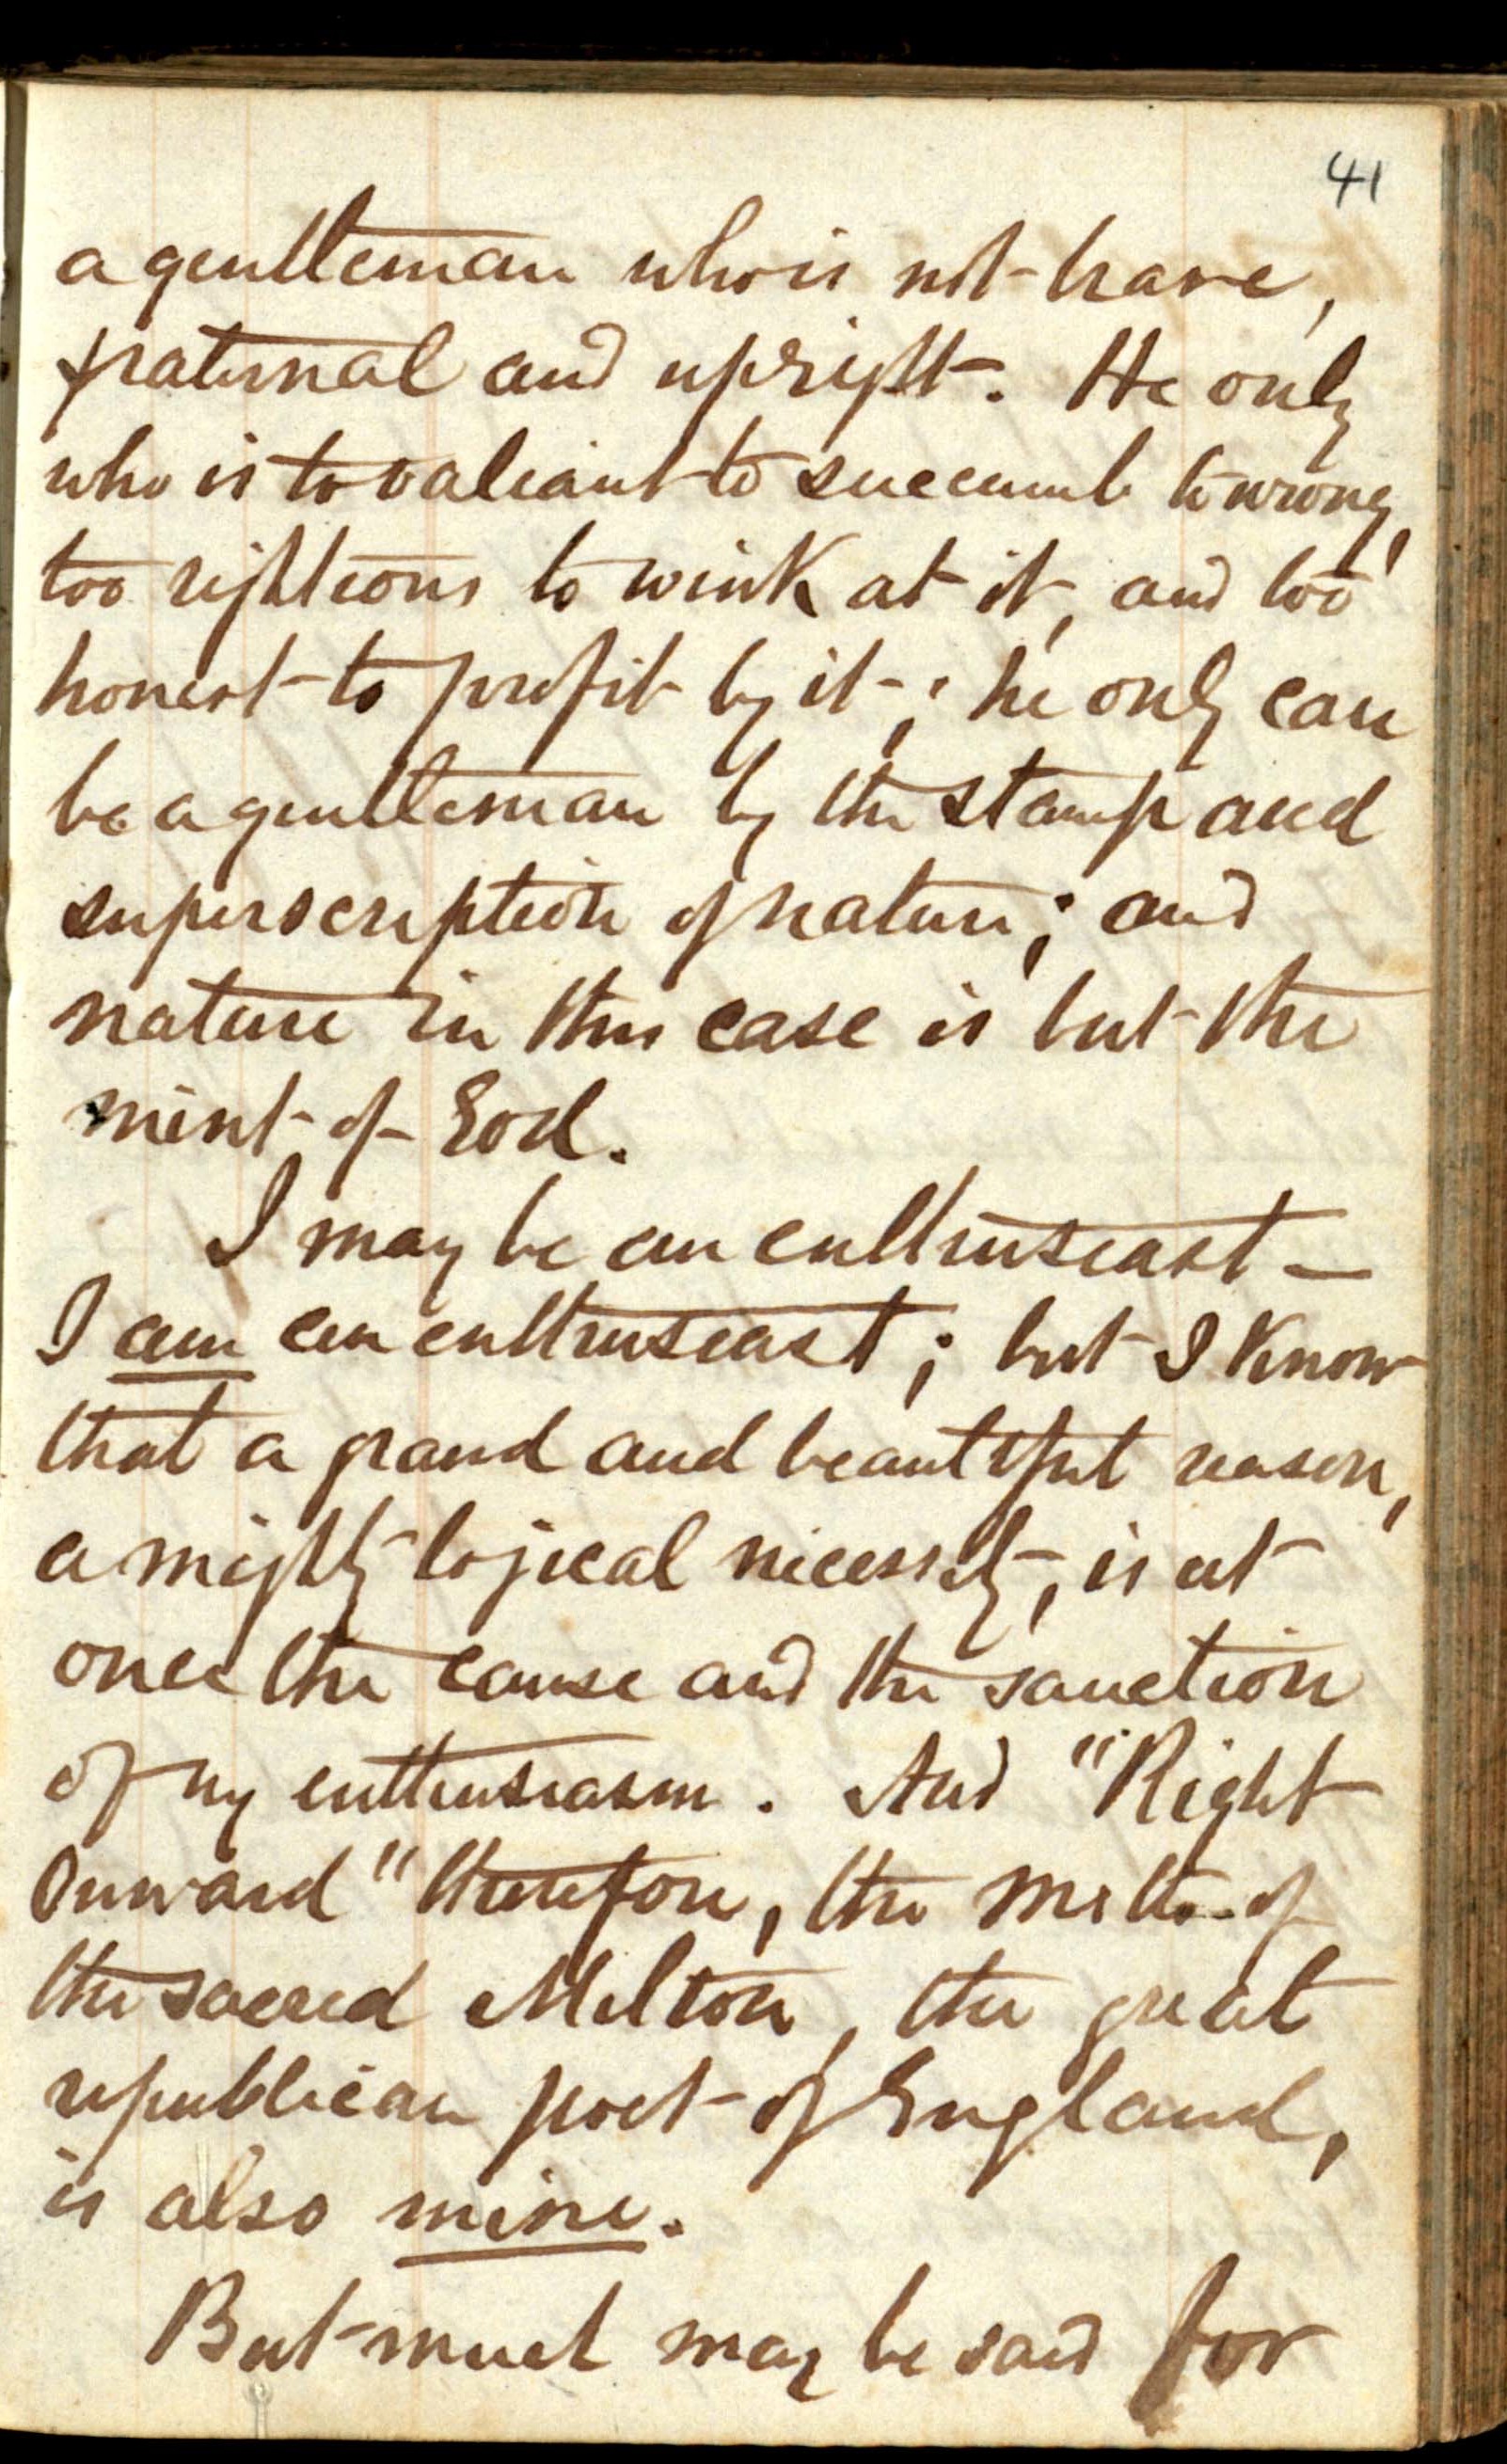 41
a gentleman who is not brave,
fraternal and upright. He only
who is to valiant to succumb to wrong,
too righteous to wink at it, and too
honest to profit by it; he only can
be a gentleman by the stamp and
superscription of nature; and
nature in this case is but the
mint of God.
I may be an enthusiast —
I am an enthusiast; but I know
that a grand and beautiful reason,
a mighty logical necessity, is at
once the cause and the sanction
of my enthusiasm. And "Right
Onward" therefore, the motto of
the sacred Milton, the great
republican poet of England,
is also mine.
But much may be said for